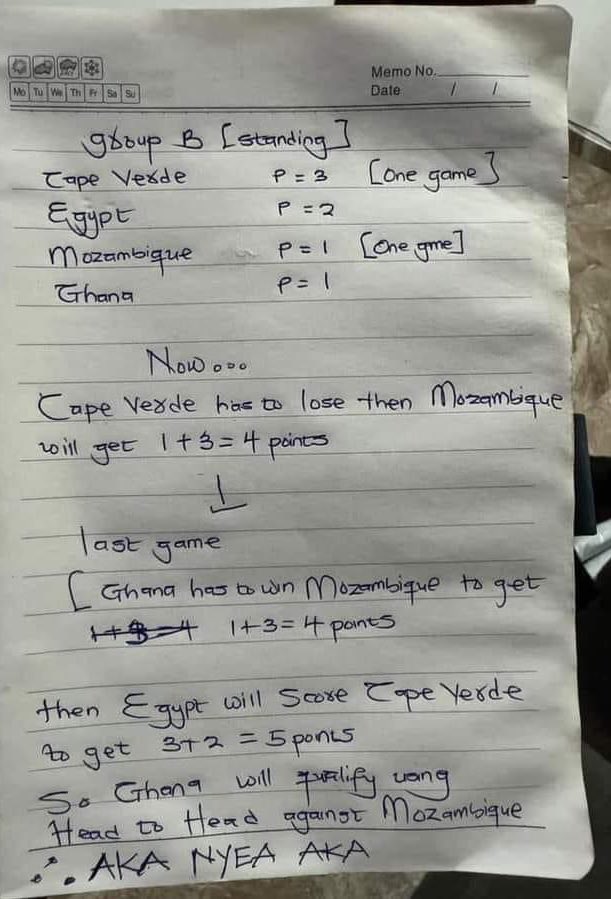 Memo No.
Mo Tu We Th Fr Sa Su
Date / /
group B [standing]
Cape Verde P = 3 [One game]
Egypt P = 2
Mozambique P = 1 [One gme]
Ghana P = 1
Now...
Cape Verde has to lose then Mozambique
will get 1+3=4 points
last game
[ Ghana has to win Mozambique to get
1+3=4 1+3=4 points
then Egypt will Score Cape Verde
to get 3+2 = 5 ponts
So Ghana will qualify using
Head to Head against Mozambique
∴ AKA NYEA AKA